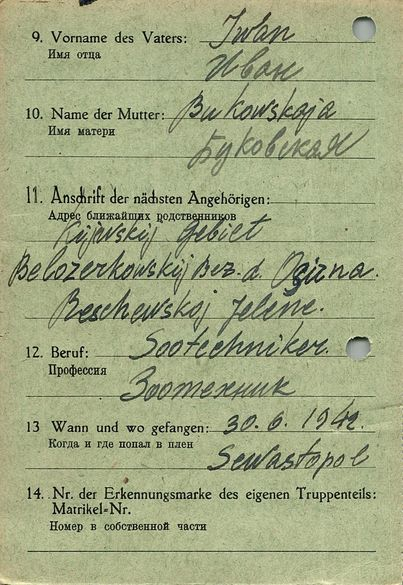 9. Vorname des Vaters: Iwan
Имя отца
Иван
10. Name der Mutter: Bukowskaja
Имя матери
Буковская
11. Anschrift der nächsten Angehörigen:
Адрес ближайших родственников
Kijewskij Gebiet
Belozerkowskij Bez. d. Osirna.
Reschewskoj Jelene.
12. Beruf: Sootechniker.
Профессия
Зоотехник
13 Wann und wo gefangen: 30.6.1942.
Когда и где попал в плен
Sewastopol
14. Nr. der Erkennungsmarke des eigenen Truppenteils:
Matrikel=Nr.
Номер в собственной части